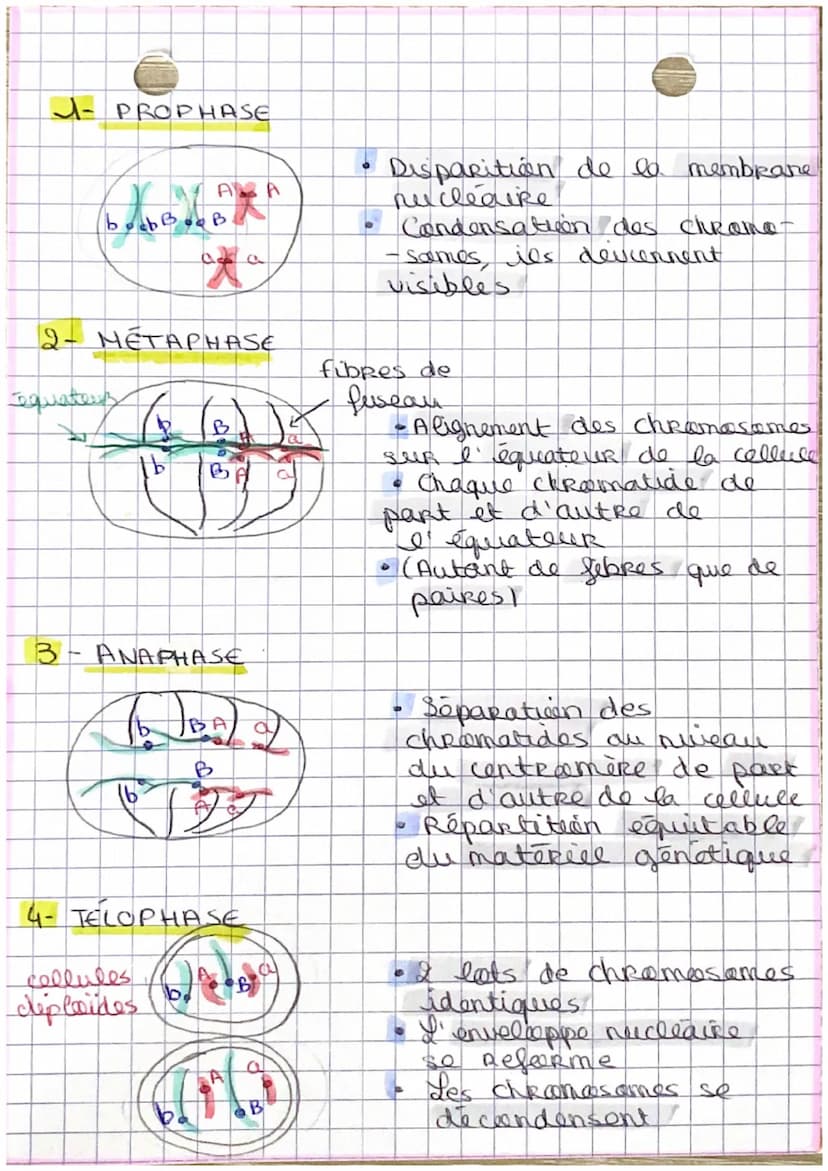 1- PROPHASE
b b B B A A
a a
• Disparition de la membrane
nucléaire
• Condensation des chromo-
-somes, ils deviennent
visibles
2- MÉTAPHASE
équateur
fibres de
fuseau
b B A a
b B A a
• Alignement des chromosomes
sur l'équateur de la cellule
• Chaque chromatide de
part et d'autre de
l'équateur
• (Autant de fibres que de
paires)
3- ANAPHASE
b B A a
b B A a
• Séparation des
chromatides au niveau
du centromère de part
et d'autre de la cellule
• Répartition équitable
du matériel génétique
4- TÉLOPHASE
cellules
diploïdes
b A B a
b A B a
• 2 lots de chromosomes
identiques
• L'enveloppe nucléaire
se reforme
• Les chromosomes se
décondensent